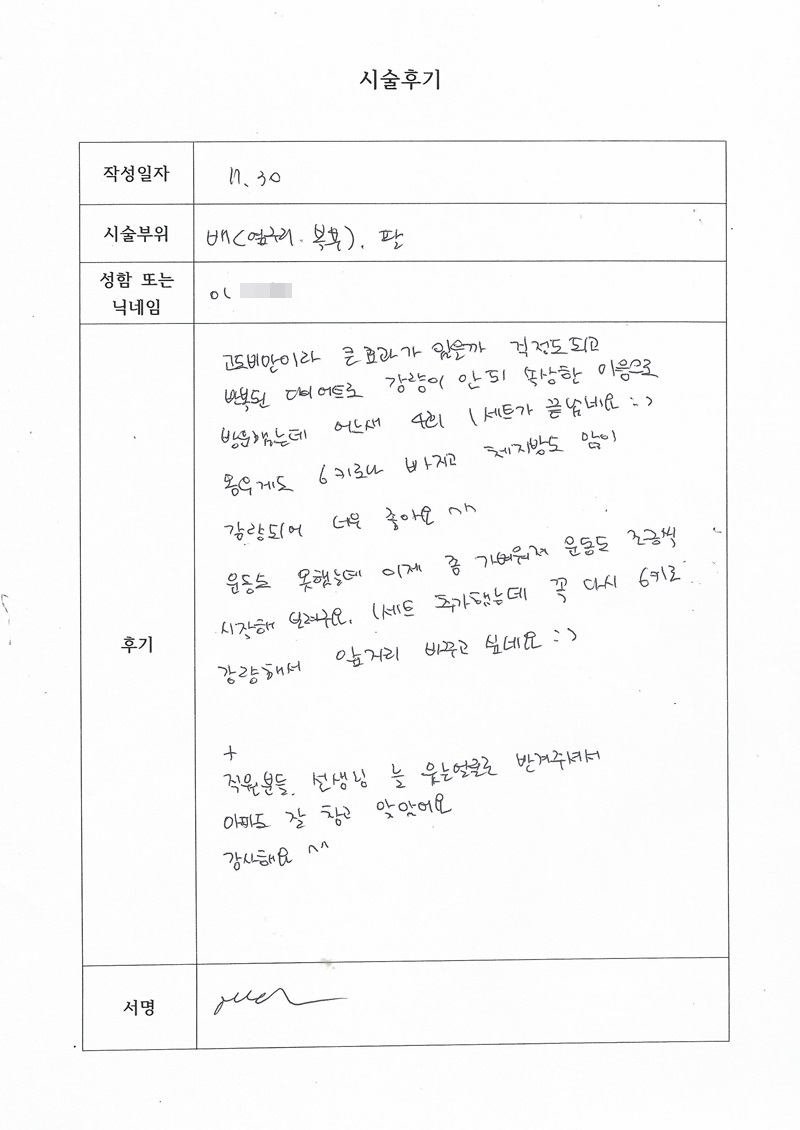 시술후기
작성일자 11. 30
시술부위 배(옆구리. 복부). 팔
성함 또는
닉네임
이
후기
고도비만이라 큰 효과가 있을까 걱정도되고
반복된 다이어트로 감량이 안되 속상한 마음으로
방문했는데 어느새 4회 1세트가 끝났네요 :>
몸무게도 6키로나 빠지고 체지방도 많이
감량되어 너무 좋아요 ^^
운동도 못했는데 이제 좀 가벼워져 운동도 조금씩
시작해 보려구요. 1세트 추가했는데 꼭 다시 6키로
감량해서 앞자리 바꾸고 싶네요 :>
+
직원분들, 선생님 늘 웃는얼굴로 반겨주셔서
아파도 잘 참고 맞았어요
감사해요 ^^
서명